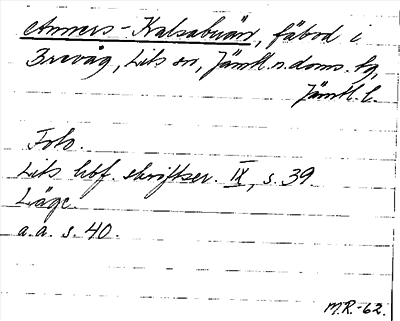 Anners-Kalsabuan, fäbod i
Brevåg, Lits sn, Jämtl. n. doms. tg,
Jämtl. l.
Foto.
Lits hbf. skriftser. IX, s. 39
Läge.
a.a. s. 40.
M.R.-62.